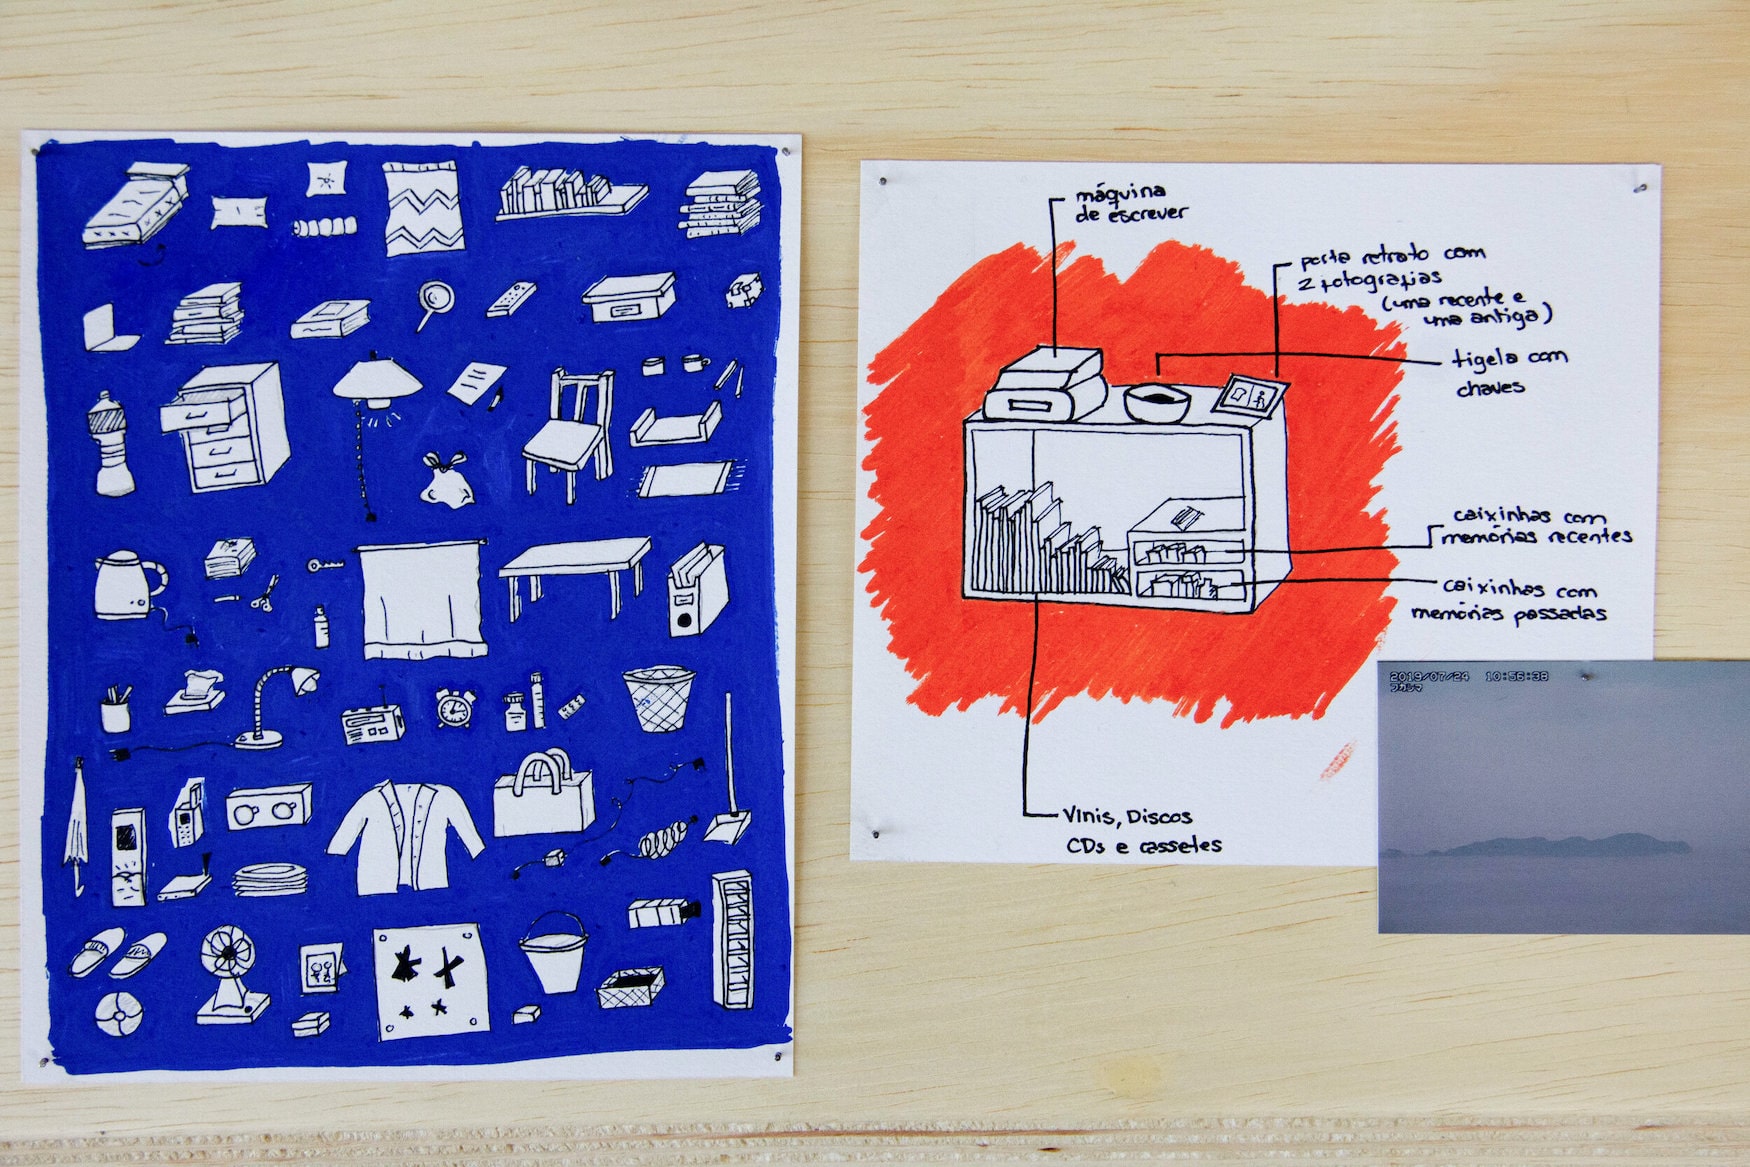 máquina
de escrever
porta retrato com
2 fotografias
(uma recente e
uma antiga)
tigela com
chaves
caixinhas com
memórias recentes
caixinhas com
memórias passadas
Vinis, Discos
CDs e cassetes
2019/07/24 10:56:38
フカシマ